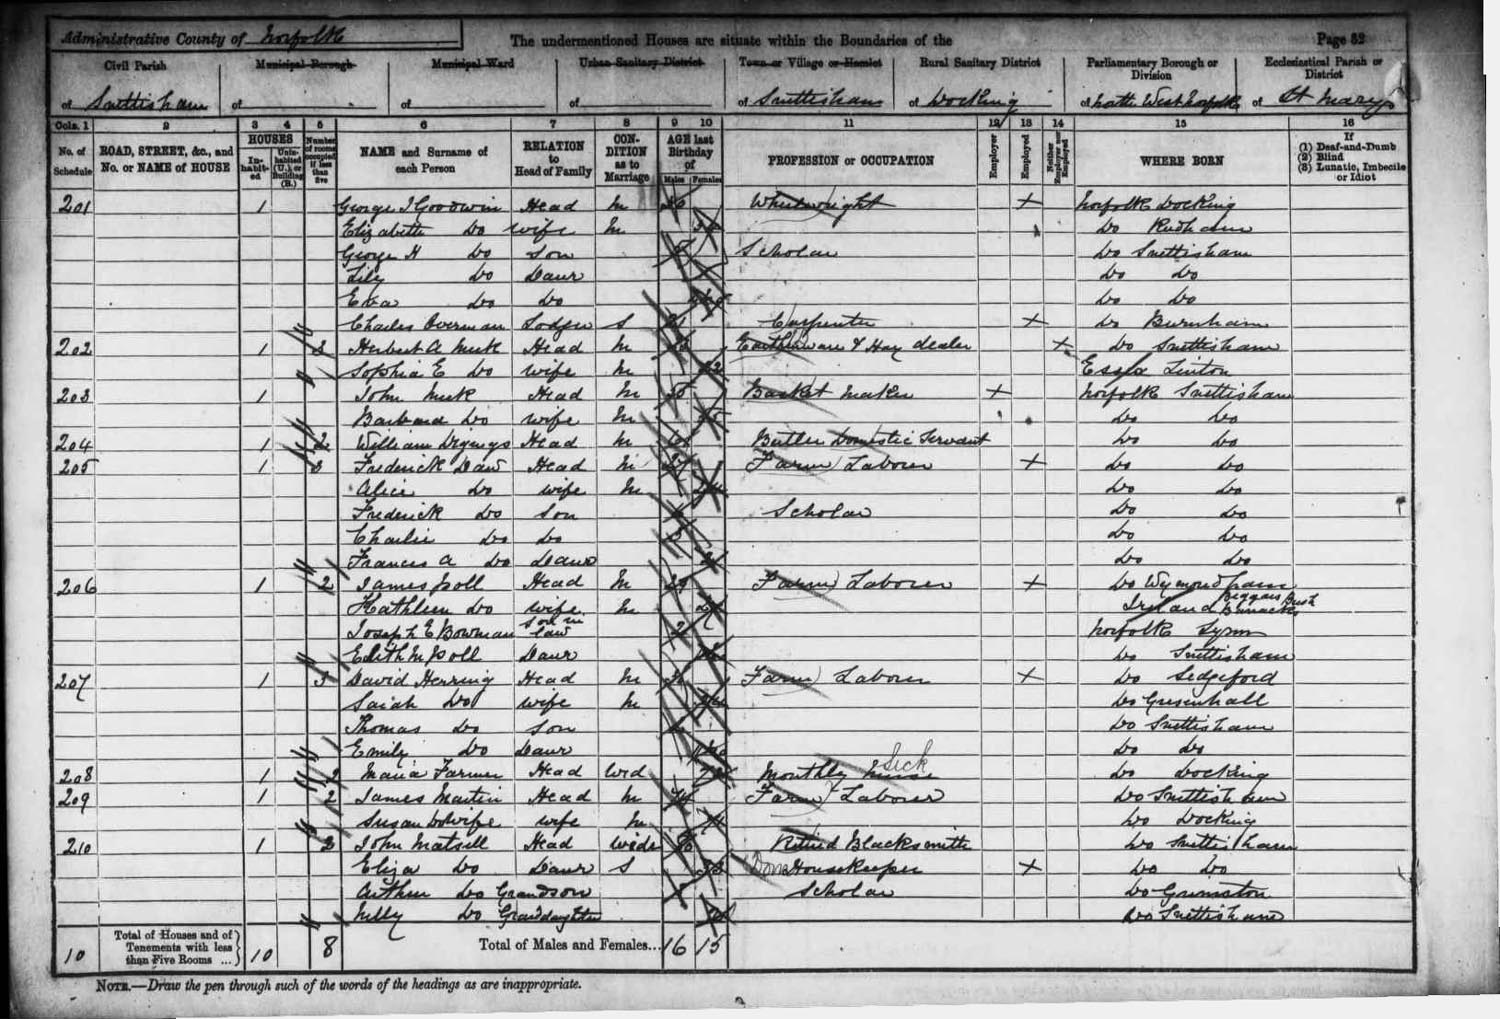 Administrative County of Norfolk
The undermentioned Houses are situate within the Boundaries of the
Page 32
Civil Parish Municipal Borough Municipal Ward Urban Sanitary District Town or Village or Hamlet Rural Sanitary District Parliamentary Borough or Division Ecclesiastical Parish or District
of Snettisham of of of of Snettisham of Docking of North West Norfolk of St Marys
Cols. 1 2 3 4 5 6 7 8 9 10 11 12 13 14 15 16
No. of Schedule ROAD, STREET, &c., and No. or NAME of HOUSE HOUSES Inhabited Uninhabited (U.) or Building (B.) Number of rooms occupied if less than five NAME and Surname of each Person RELATION to Head of Family CONDITION as to Marriage AGE last Birthday of Males Females PROFESSION or OCCUPATION Employer Employed Neither Employer nor Employed WHERE BORN If (1) Deaf-and-Dumb (2) Blind (3) Lunatic, Imbecile or Idiot
201 1 George J Goodwin Head M Wheelwright X Norfolk Docking
Elizabeth Do wife M Do Rudham
George H Do Son Scholar Do Snettisham
Lily Do Daur Do Do
Eva Do Do Do Do
Charles Overman Lodger S Carpenter X Do Burnham
202 1 3 Herbert A Meek Head M Earthenware & Hay dealer X Do Snettisham
Sophia E Do wife M Essex Linton
203 1 John Meek Head M Basket Maker X Norfolk Snettisham
Barbara Do wife M Do Do
204 1 2 William Head M Butler Domestic Servant Do Do
205 1 3 Frederick Daw Head M 27 Farm Laborer X Do Do
Alice Do wife M Do Do
Frederick Do Son Scholar Do Do
Charlie Do Do Do Do
Frances A Do Daur Do Do
206 1 2 James Poll Head M 29 Farm Laborer X Do Wymondham
Kathleen Do wife M Ireland Beggars Bush
Joseph E Bowman Son in law 2 Norfolk Lynn
Edith M Poll Daur Do Snettisham
207 1 3 David Herring Head M Farm Laborer X Do Sedgeford
Sarah Do wife M Do Gresenhall
Thomas Do Son Do Snettisham
Emily Do Daur Do Do
208 1 2 Maria Farmer Head Wid Monthly Nurse Sick Do Docking
209 1 2 James Martin Head M 74 Farm Laborer Do Snettisham
Susan Do wife wife M Do Docking
210 1 3 John Matsell Head Wide Retired Blacksmith Do Snettisham
Eliza Do Daur S Dom Housekeeper X Do Do
Arthur Do Grandson Scholar Do Grimston
Nelly Do Granddaughter Do Snettisham
10 Total of Houses and of Tenements with less than Five Rooms ... 10 8 Total of Males and Females... 16 15
NOTE.—Draw the pen through such of the words of the headings as are inappropriate.